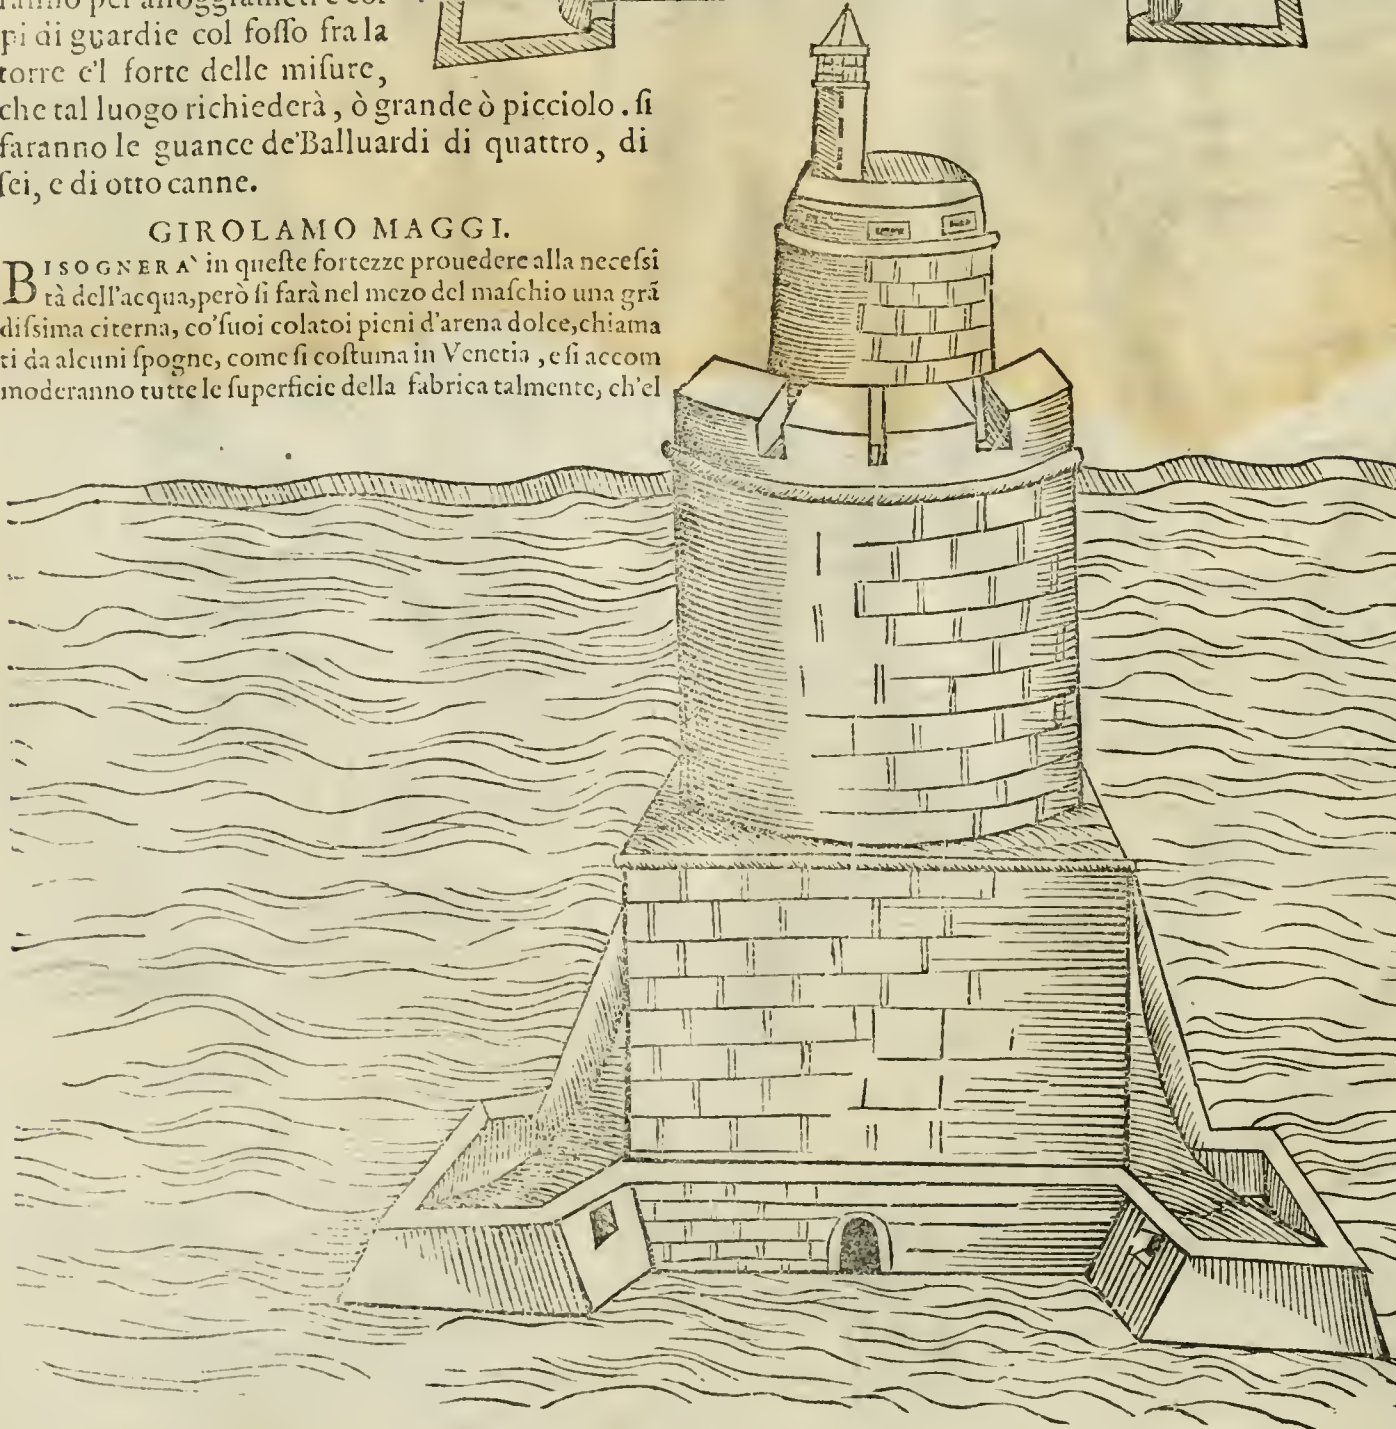 pi di guardie col fosso fra la
torre e'l forte delle misure,
che tal luogo richiederà, ò grande ò picciolo. si
faranno le guance de'Balluardi di quattro, di
sei, e di otto canne.
GIROLAMO MAGGI.
BISOGNERA` in queste fortezze prouedere alla necessi
tà dell'acqua, però si farà nel mezo del maschio una grã
dissima citerna, co'suoi colatoi pieni d'arena dolce, chiama
ti da alcuni spogne, come si costuma in Venetia, e si accom
moderanno tutte le superficie della fabrica talmente, ch'el